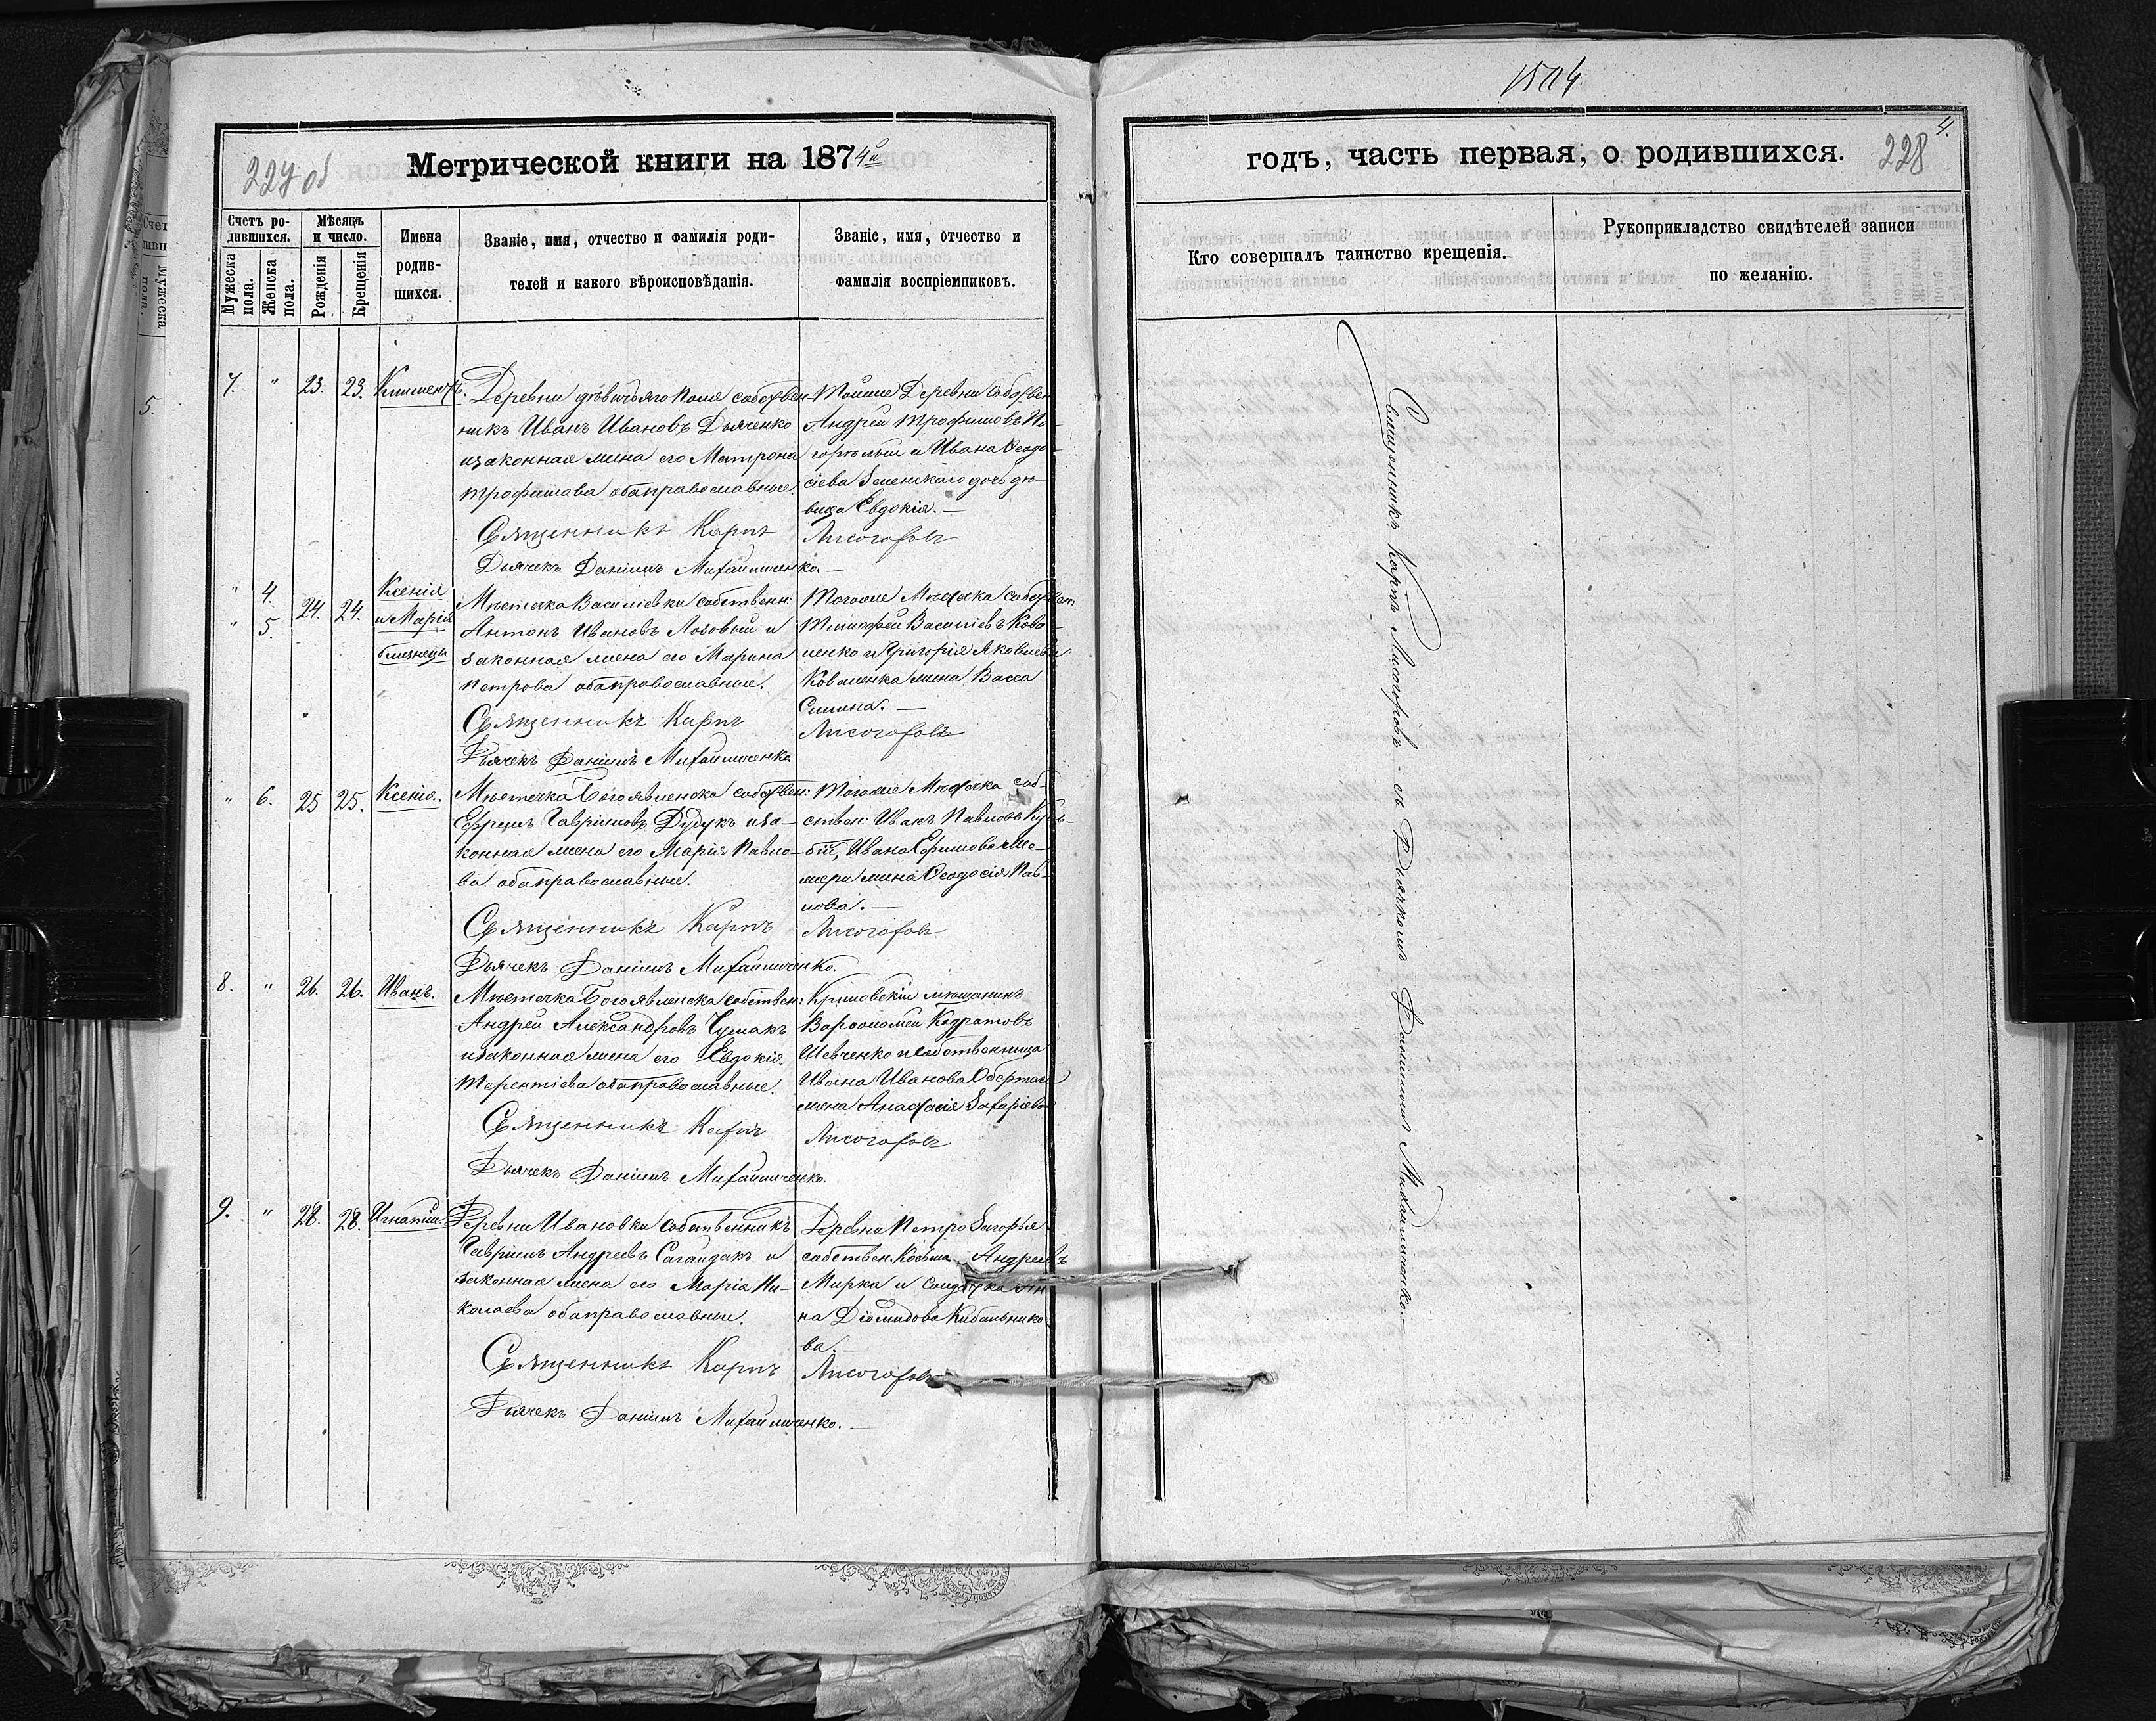 1504
227 об
Метрической книги на 1874й
годъ, часть первая, о родившихся.
228
4.
Счетъ ро-
дившихся.
Мужеска пола.
Женска пола.
Мѣсяцъ
и число.
Рожденія
Крещенія
Имена
родив-
шихся.
Званіе, имя, отчество и фамилія роди-
телей и какого вѣроисповѣданія.
Званіе, имя, отчество и
фамилія воспріемниковъ.
Кто совершалъ таинство крещенія.
Рукоприкладство свидѣтелей записи
по желанію.
7. " 23. 23. Климентъ.
Деревни дѣвичьяго Поля собствен-
никъ Иванъ Ивановъ Дьяченко
изаконная жена его Матрона
Трофимова обаправославные.
Священникъ Карпъ
Дьячекъ Даніилъ Михайличенко.—
Тойже Деревни собствен
Андрей Трофимовъ По-
горѣлый и Ивана Ѳеодо-
сіева Зеленскаго дочь дѣ-
вица Евдокія.—
Лисогоровъ
" 4.
" 5.
24. 24.
Ксенія
и Марія
близнецы
Мѣстечка Василіевки собственн:
Антонъ Ивановъ Лозовый и
законная жена его Марина
Петрова обаправославные.
Священникъ Карпъ
Дьячекъ Даніилъ Михайличенко
Тогоже Мѣстечка собствен:
Тимофей Василіевъ Кова-
ленко и Григорія Яковлева
Коваленка жена Васса
Саввина.—
Лисогоровъ
" 6. 25 25. Ксенія.
Мѣстечка Богоявленска собствен:
Ефремъ Гавріиловъ Дудукъ иза-
конная жена его Марія Павло-
ва обаправославные.
Священникъ Карпъ
Дьячекъ Даніилъ Михайличенко.
Тогоже Мѣстечка соб-
ствен: Иванъ Павловъ
Ивана Ефимова
жена Ѳеодосія Пав-
лова.—
Лисогоровъ
8. " 26. 26. Иванъ.
Мѣстечка Богоявленска собствен:
Андрей Александровъ Чумакъ
изаконная жена его Евдокія
Терентіева обаправославные.
Священникъ Карпъ
Дьячекъ Даніилъ Михайличенко.
мѣщанинъ
Варѳоломей Кодратовъ
Шевченко исобственница
Ивана Иванова
жена Анастасія Захаріева
Лисогоровъ
9. " 28. 28. Игнатій.
Деревни Ивановки собственникъ
Гавріилъ Андреевъ Сагайдакъ и
законная жена его Марія Ни-
колаева обаправославные.
Священникъ Карпъ
Дьячекъ Даніилъ Михайличенко.—
Деревни Петро Загорья
собствен. Косьма Андреевъ
Мирка и солдатка Ан
на Діомидова Кибальнико
ва.—
Лисогоровъ
Священникъ Карпъ Лисогоровъ - съ Дьячкомъ Даніиломъ Михайличенко.—